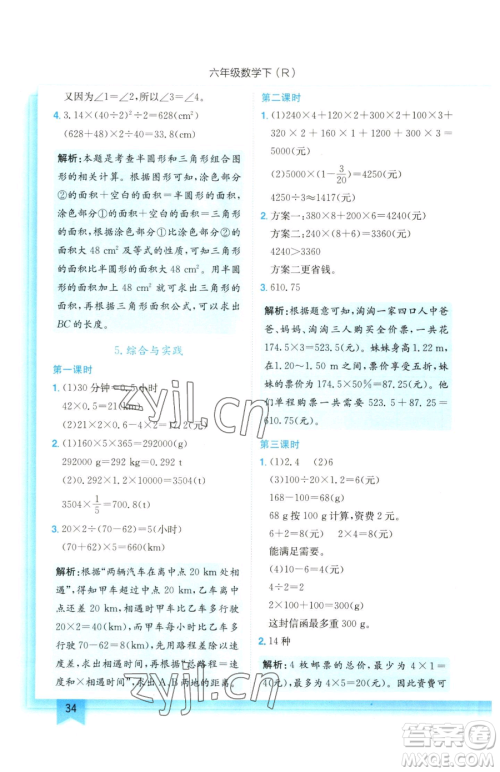 六年级数学下(R)
又因为∠1=∠2,所以∠1=∠3。
4. 3.14×(40÷2)²÷2=628(cm²)
(628+48)×2÷40=33.8(cm)
解析:本题是考查半圆形和三角形组合图
形的相关计算。根据图形可知,涂色部分
②的面积+空白的面积=半圆形的面积,
涂色部分①的面积+空白的面积=三角
形的面积,由涂色部分①的面积比涂色部
分②的面积大 48 cm²及等式的性质,可知
三角形的面积比半圆形的面积大 48 cm²。
用半圆形的面积加上 48 cm²可以求出三角形的面
积,再根据三角形面积公式,可以求出
BC 的长度。
5. 综合与实践
第一课时
1. (1)30 分钟=0.5 小时
42×0.5=21(km)
(2)21×2÷6-4=3(km)
2. (1)160×5×365=292000(g)
292000 g=292 kg=0.292 t
(2)0.292×1.2×10000=3504(t)
3504×1/5=700.8(t)
3. 20×2÷(70-62)=5(小时)
(70+62)×5=660(km)
解析:根据“两辆汽车在离中点 20 km 处相
遇”,得知甲车超过中点 20 km,乙车离中
点还有 20 km,相遇时甲车比乙车多行驶
20×2=40(km),用甲车比乙车多行驶的
路程除以速度差,得到相遇时间。再根据
“速度和×相遇时间=总路程=A、B 两地的
距离”,求出 A、B 两地的距离。
34
第二课时
1. (1)240×4+120×2+300×2+300×3+
320×2+320×3+350×2=
5000(元)
(2)5000×(1-3/20)=4250(元)
4250÷3≈1417(元)
2. 方案一:380×8+80×4=3360(元)
方案二:240×(8+6)=3360(元)
4240>3360
方案二更省钱。
3. 610.75
解析:根据题意可知,淘淘一家四口人中爸
爸、妈妈、淘淘买成人全价票,一共花
174.5×3=523.5(元)。妹妹身高 1.22 m,
在 1.20~1.50 m 之间,买半价票,所以妹
妹的票价为 174.5×50%=87.25(元)。
淘淘一家买票共需要 523.5+87.25=
610.75(元)。
第三课时
1. (1)2.4 (2)6
(3)100÷20×1.2=6(元)
168-100=68(g)
68 g 按 100 g 计算,资费 2 元。
6+2=8(元) 2×4=8(元)
能满足需要。
(4)10-6=4(元)
4÷2=2
2×100=200(g)
200+100=300(g)
这封信函最多重 300 g。
2. 14 种
解析:4 枚邮票的总价,最少 4×1=
4(元),最多 4×2=8(元),因此资费可以
zyjl.cn
zyjl.cn
答案圈
MXQE.COM